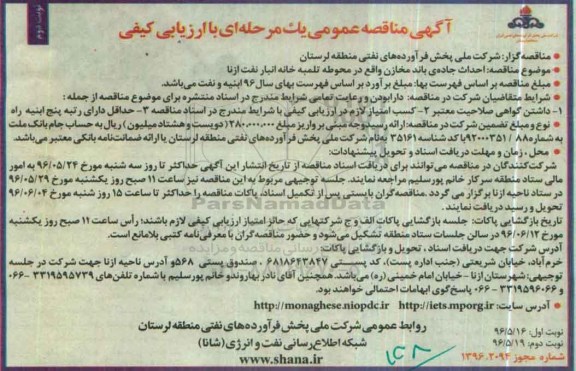 نوبت دوم
آگهی مناقصه عمومی یك مرحله‌ای با ارزیابی کیفی
مناقصه‌گزار: شرکت ملی پخش فرآورده‌های نفتی منطقه لرستان
موضوع مناقصه: احداث جاده‌ی باند مخازن واقع در محوطه تلمبه خانه انبار نفت ازنا
مبلغ مناقصه بر اساس فهرست بها: مبلغ برآورد بر اساس فهرست بهای سال ۹۶ ابنیه و نفت می‌باشد.
شرایط متقاضیان شرکت در مناقصه: دارابودن و رعایت تمامی شرایط مندرج در اسناد منتشره برای موضوع مناقصه از جمله:
۱- داشتن گواهی صلاحیت معتبر ۲- کسب امتیاز لازم در ارزیابی کیفی با شرایط مندرج در اسناد مناقصه ۳- حداقل دارای رتبه پنج ابنیه راه
نوع و مبلغ تضمین شرکت در مناقصه: ارائه رسید وجه مبنی بر واریز مبلغ ۲۸۰۰۰۰۰۰۰ (دویست و هشتاد میلیون) ریال به حساب جام بانک ملت
به شماره ۹۲۰۰۰۳۵۱/۸۸ با کد شناسه ۳۵۱۶۱ بنام شرکت ملی پخش فرآورده‌های نفتی منطقه لرستان یا ارائه ضمانت‌نامه بانکی معتبر می‌باشد.
محل، زمان و مهلت دریافت اسناد و تحویل پیشنهادات:
شرکت‌کنندگان در مناقصه می‌توانند برای دریافت اسناد مناقصه از تاریخ انتشار این آگهی حداکثر تا روز سه شنبه مورخ ۹۶/۰۵/۲۴ به امور
مالی ستاد منطقه سرکار خانم پورسلیم مراجعه نمایند. جلسه توجیهی مربوط به این مناقصه نیز ساعت ۱۱ صبح روز یکشنبه مورخ ۹۶/۰۵/۲۹
در ستاد ناحیه ازنا برگزار می گردد. مناقصه‌گران بایستی پس از تکمیل اسناد، پاکات مناقصه را حداکثر تا ساعت ۱۵ روز شنبه مورخ ۹۶/۰۶/۰۴
تحویل و رسید دریافت نمایند.
تاریخ بازگشایی پاکات: جلسه بازگشایی پاکات الف و ج شرکتهایی که حائز امتیاز ارزیابی کیفی لازم باشند؛ رأس ساعت ۱۱ صبح روز یکشنبه
مورخ ۹۶/۰۶/۱۲ در سالن جلسات ستاد منطقه تشکیل می‌شود و حضور مناقصه‌گران با معرفی‌نامه کتبی بلامانع است.
آدرس شرکت جهت دریافت اسناد، تحویل و بازگشایی پاکات:
خرم‌آباد، خیابان شریعتی (جنب اداره پست)، کد پستی ۶۸۱۸۶۴۳۸۴۷، صندوق پستی ۵۶۸ و آدرس ناحیه ازنا جهت شرکت در جلسه
توجیهی: شهرستان ازنا - خیابان امام خمینی (ره) می باشد. همچنین آقای نادر بهاروند و خانم پورسلیم با شماره تلفن‌های ۳۳۱۹۵۹۵۷۳۹-۰۶۶
و ۳۳۱۹۵۹۶۰۶۶-۰۶۶ پاسخگوی ابهامات احتمالی خواهند بود.
آدرس سایت: http://iets.mporg.ir http://monaghese.niopdc.ir
نوبت اول: ۹۶/۵/۱۶
نوبت دوم: ۹۶/۵/۱۹
شماره مجوز ۱۳۹۶.۲۰۹۴
روابط عمومی شرکت ملی پخش فرآورده‌های نفتی منطقه لرستان
شبکه اطلاع‌رسانی نفت و انرژی (شانا)
www.shana.ir
ParsNamadData